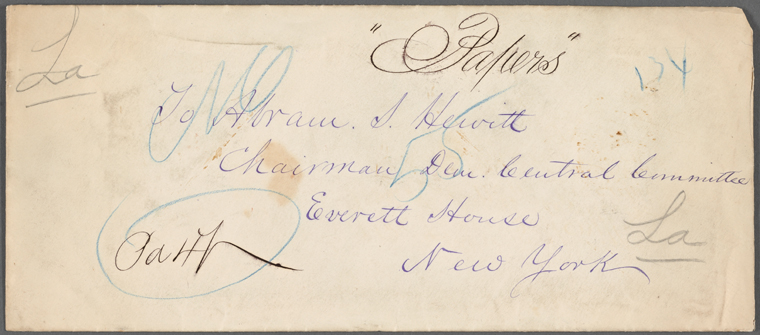 "Papers"
La
134
To Abram. S. Hewitt
Chairman Dem: Central Committee
Everett House
New York
La